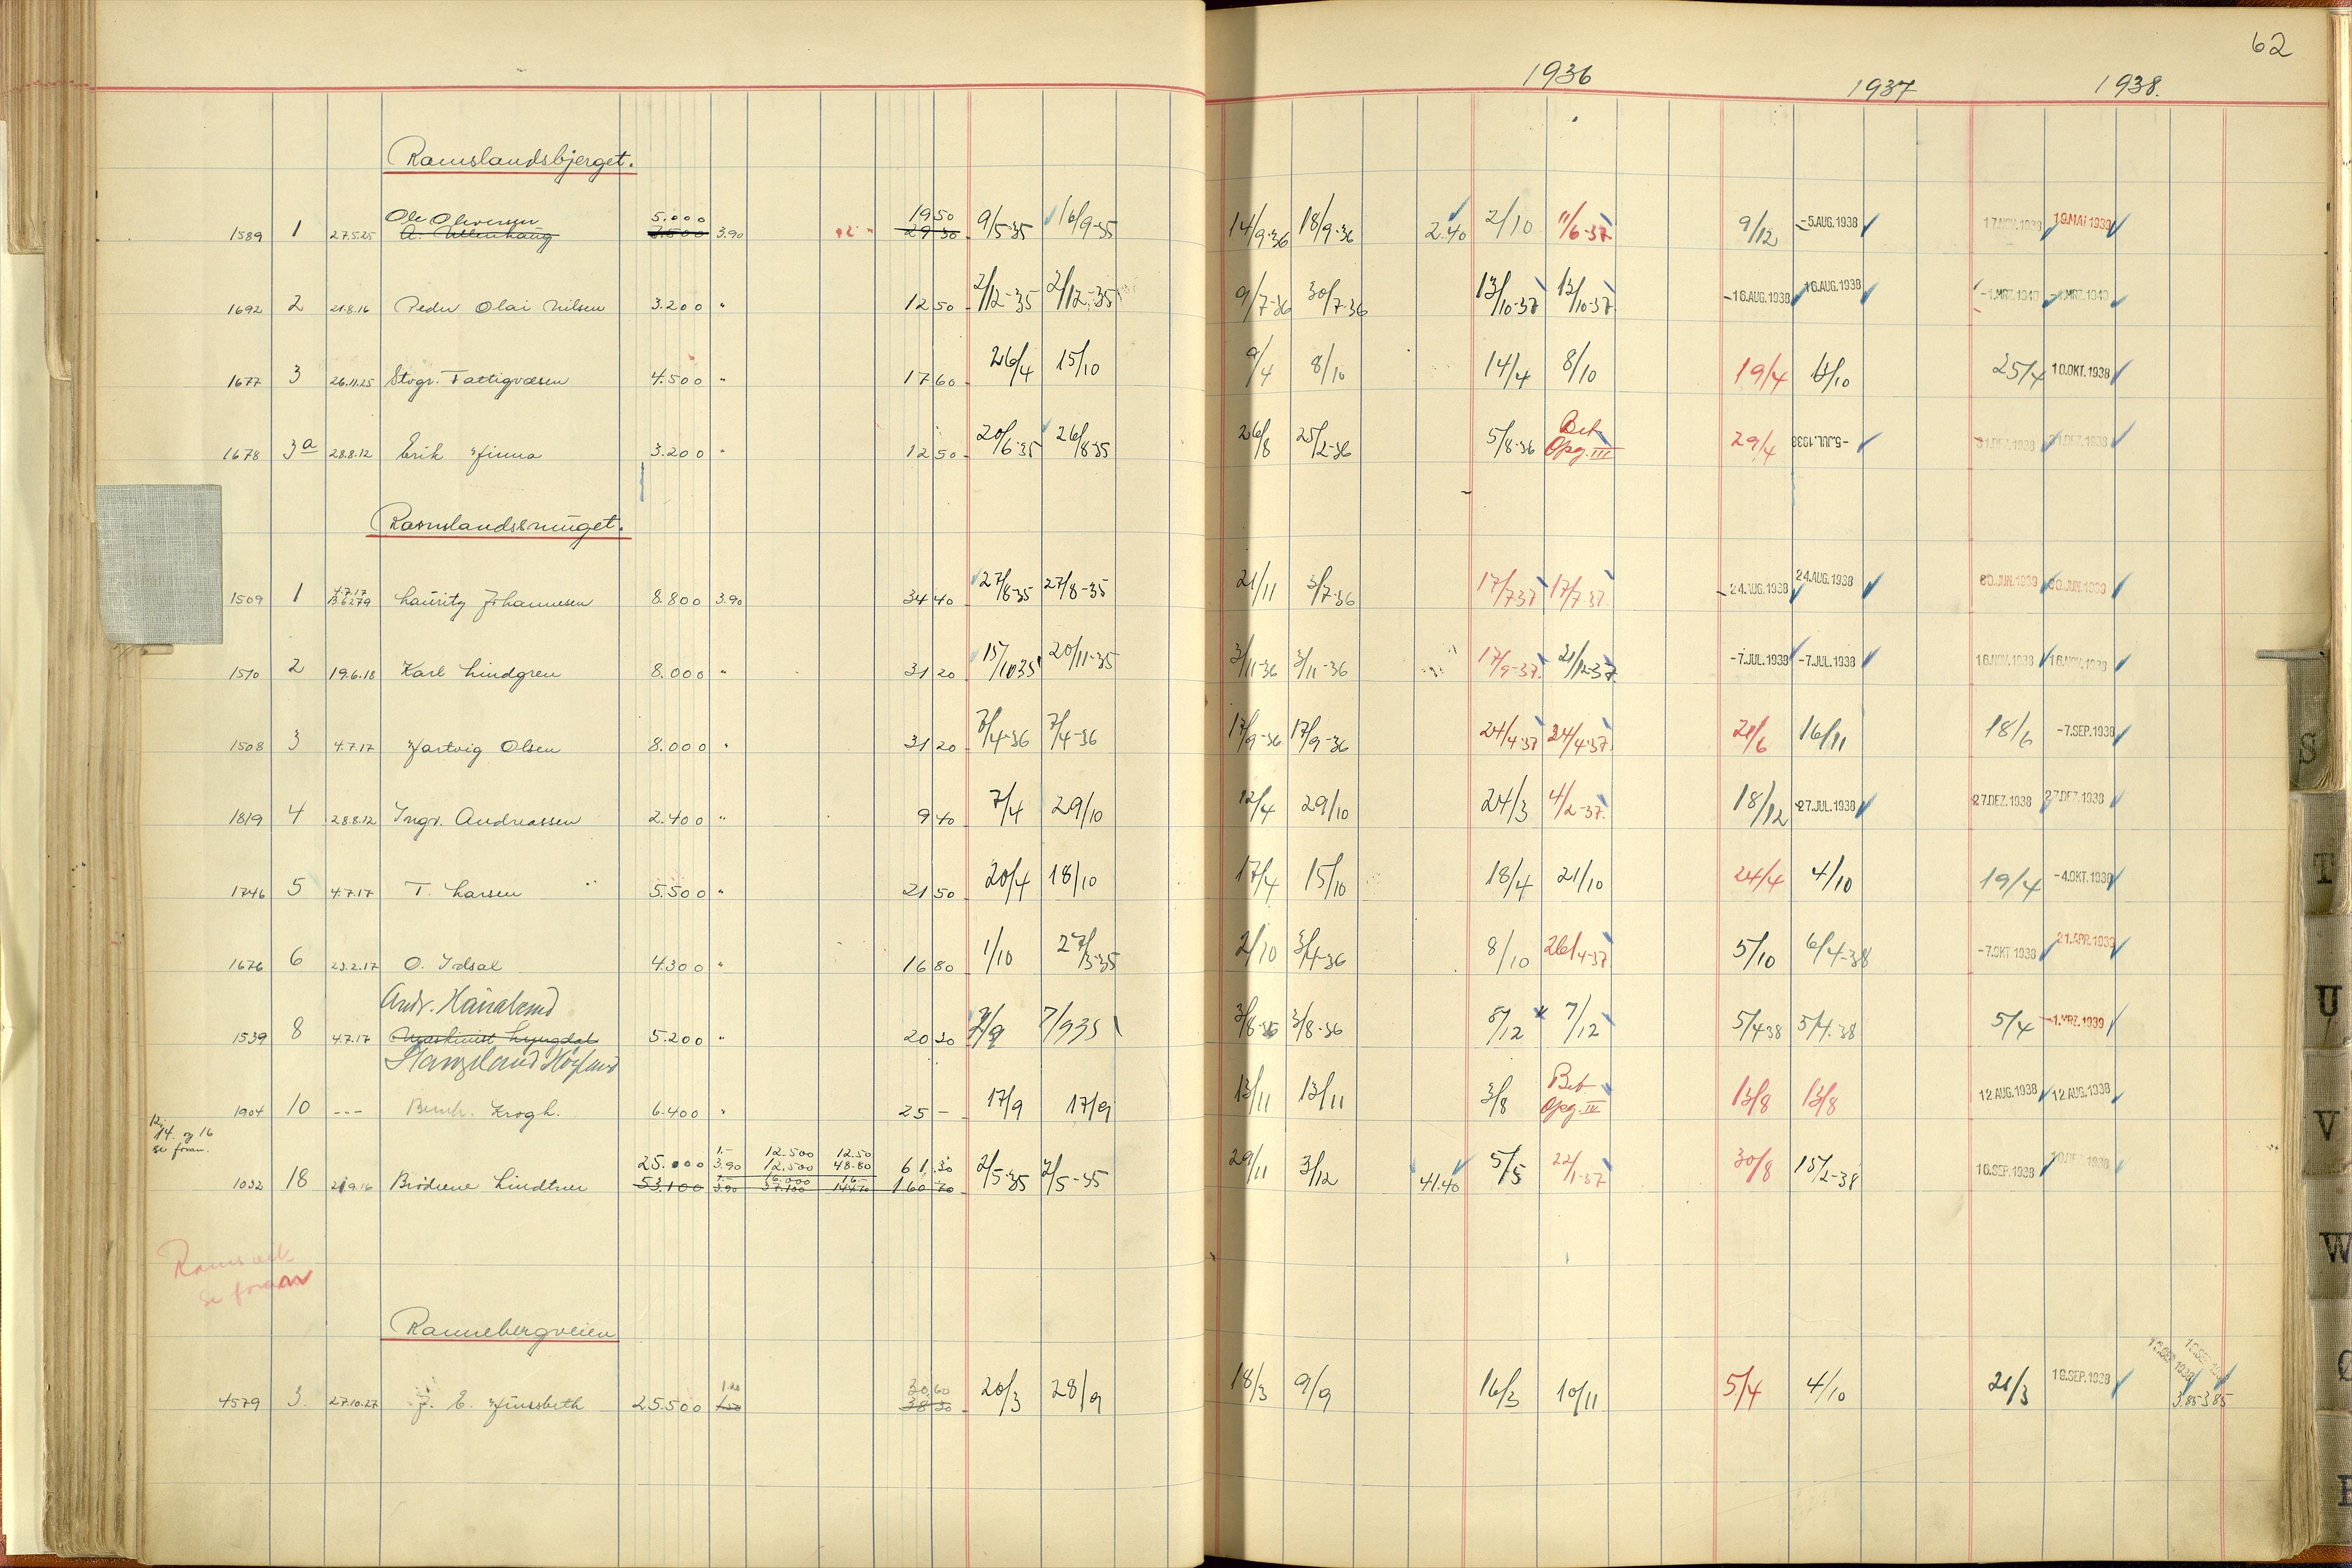 62
1936 1937 1938.
Ramslandsbjerget.
Ole Olversen 5.000 19 50
1589 1 27.5.25 A. Ullenhaug 7.500 3.90 29 30 9/5-35 16/9-35 14/9-36 18/9-36 2.40 2/10 11/6-37 9/12 -5.AUG.1938 17.NOV.1938 19.MAI 1939
1692 2 21.8.16 Peder Olai Nilsen 3.200 " 12 50 2/12-35 2/12-35 9/7-36 30/7-36 13/10-37 13/10-37 -16.AUG.1938 16.AUG.1938 -1.MRZ.1940 -1.MRZ.1940
1677 3 26.11.25 Stvgr. Fattigvæsen 4.500 " 17 60 26/4 15/10 9/4 8/10 14/4 8/10 19/4 11/10 25/4 10.OKT.1938
1678 3a 28.8.12 Erik Finna 3.200 " 12 50 20/6-35 26/8-35 26/8 25/2-36 5/8-36 Bet. Opg. III 29/4 -5.JUL.1938 31.DEZ.1938 31.DEZ.1938
Ramslandssmuget.
1509 1 4.7.17 B.6279 Lauritz Johannesen 8.800 3.90 34 40 27/8-35 27/8-35 21/11 3/7-36 17/7-37 17/7-37. 24.AUG.1938 24.AUG.1938 30.JUN.1939 30.JUN.1939
1510 2 19.6.18 Karl Lindgren 8.000 " 31 20 15/10 35 20/11-35 3/11-36 3/11-36 17/9-37. 31/12-37. -7.JUL.1938 -7.JUL.1938 16.NOV.1938 16.NOV.1938
1508 3 4.7.17 Hartvig Olsen 8.000 " 31 20 7/4-36 7/4-36 17/9-36 17/9-36 24/4-37 24/4-37. 21/6 16/11 18/6 -7.SEP.1938
1819 4 28.8.12 Ingv. Andreassen 2.400 " 9 40 7/4 29/10 12/4 29/10 24/3 4/2-37. 18/12 27.JUL.1938 27.DEZ.1938 27.DEZ.1938
1746 5 4.7.17 T. Larsen 5.500 " 21 50 20/4 18/10 17/4 15/10 18/4 21/10 24/4 4/10 19/4 -4.OKT.1938
1676 6 23.2.17 O. Idsal 4.300 " 16 80 1/10 27/3-35 2/10 3/4-36 8/10 26/4-37 5/10 6/4-38 -7.OKT 1938 21.APR.1939
Andr. Haualand
1539 8 4.7.17 Maskinist Lyngdal 5.200 " 20 30 7/9 7/9 35 3/8-36 3/8-36 8/12 7/12 5/4 38 5/4-38 5/4 -1.MRZ.1939
Stangeland Høyland
1904 10 --- Bernh. Krogh. 6.400 " 25 - 17/9 17/9 13/11 13/11 3/8 Bet Opg. IV 13/8 13/8 12 AUG.1938 12 AUG.1938
12, 14. og 16
se foran.
25.000 1.- 12.500 12.50
3.90 12.500 48.80 61.30
1032 18 21.9.16 Brødrene Lindtner 53.100 3.90 16.000 16.- 37.100 144 70 160 70 2/5-35 2/5-35 29/11 3/12 41.40 5/5 22/1-37 30/8 15/2-38 10.SEP.1938
se foran
Rannebergveien
1.20 30.60
4579 3. 27.10.27 J. E. Finsbeth 25.500 1.50 38 30 20/3 28/9 18/3 9/9 16/3 10/11 5/4 4/10 21/3 19.SEP.1938 3.85 3.85
S
T
U
V
W